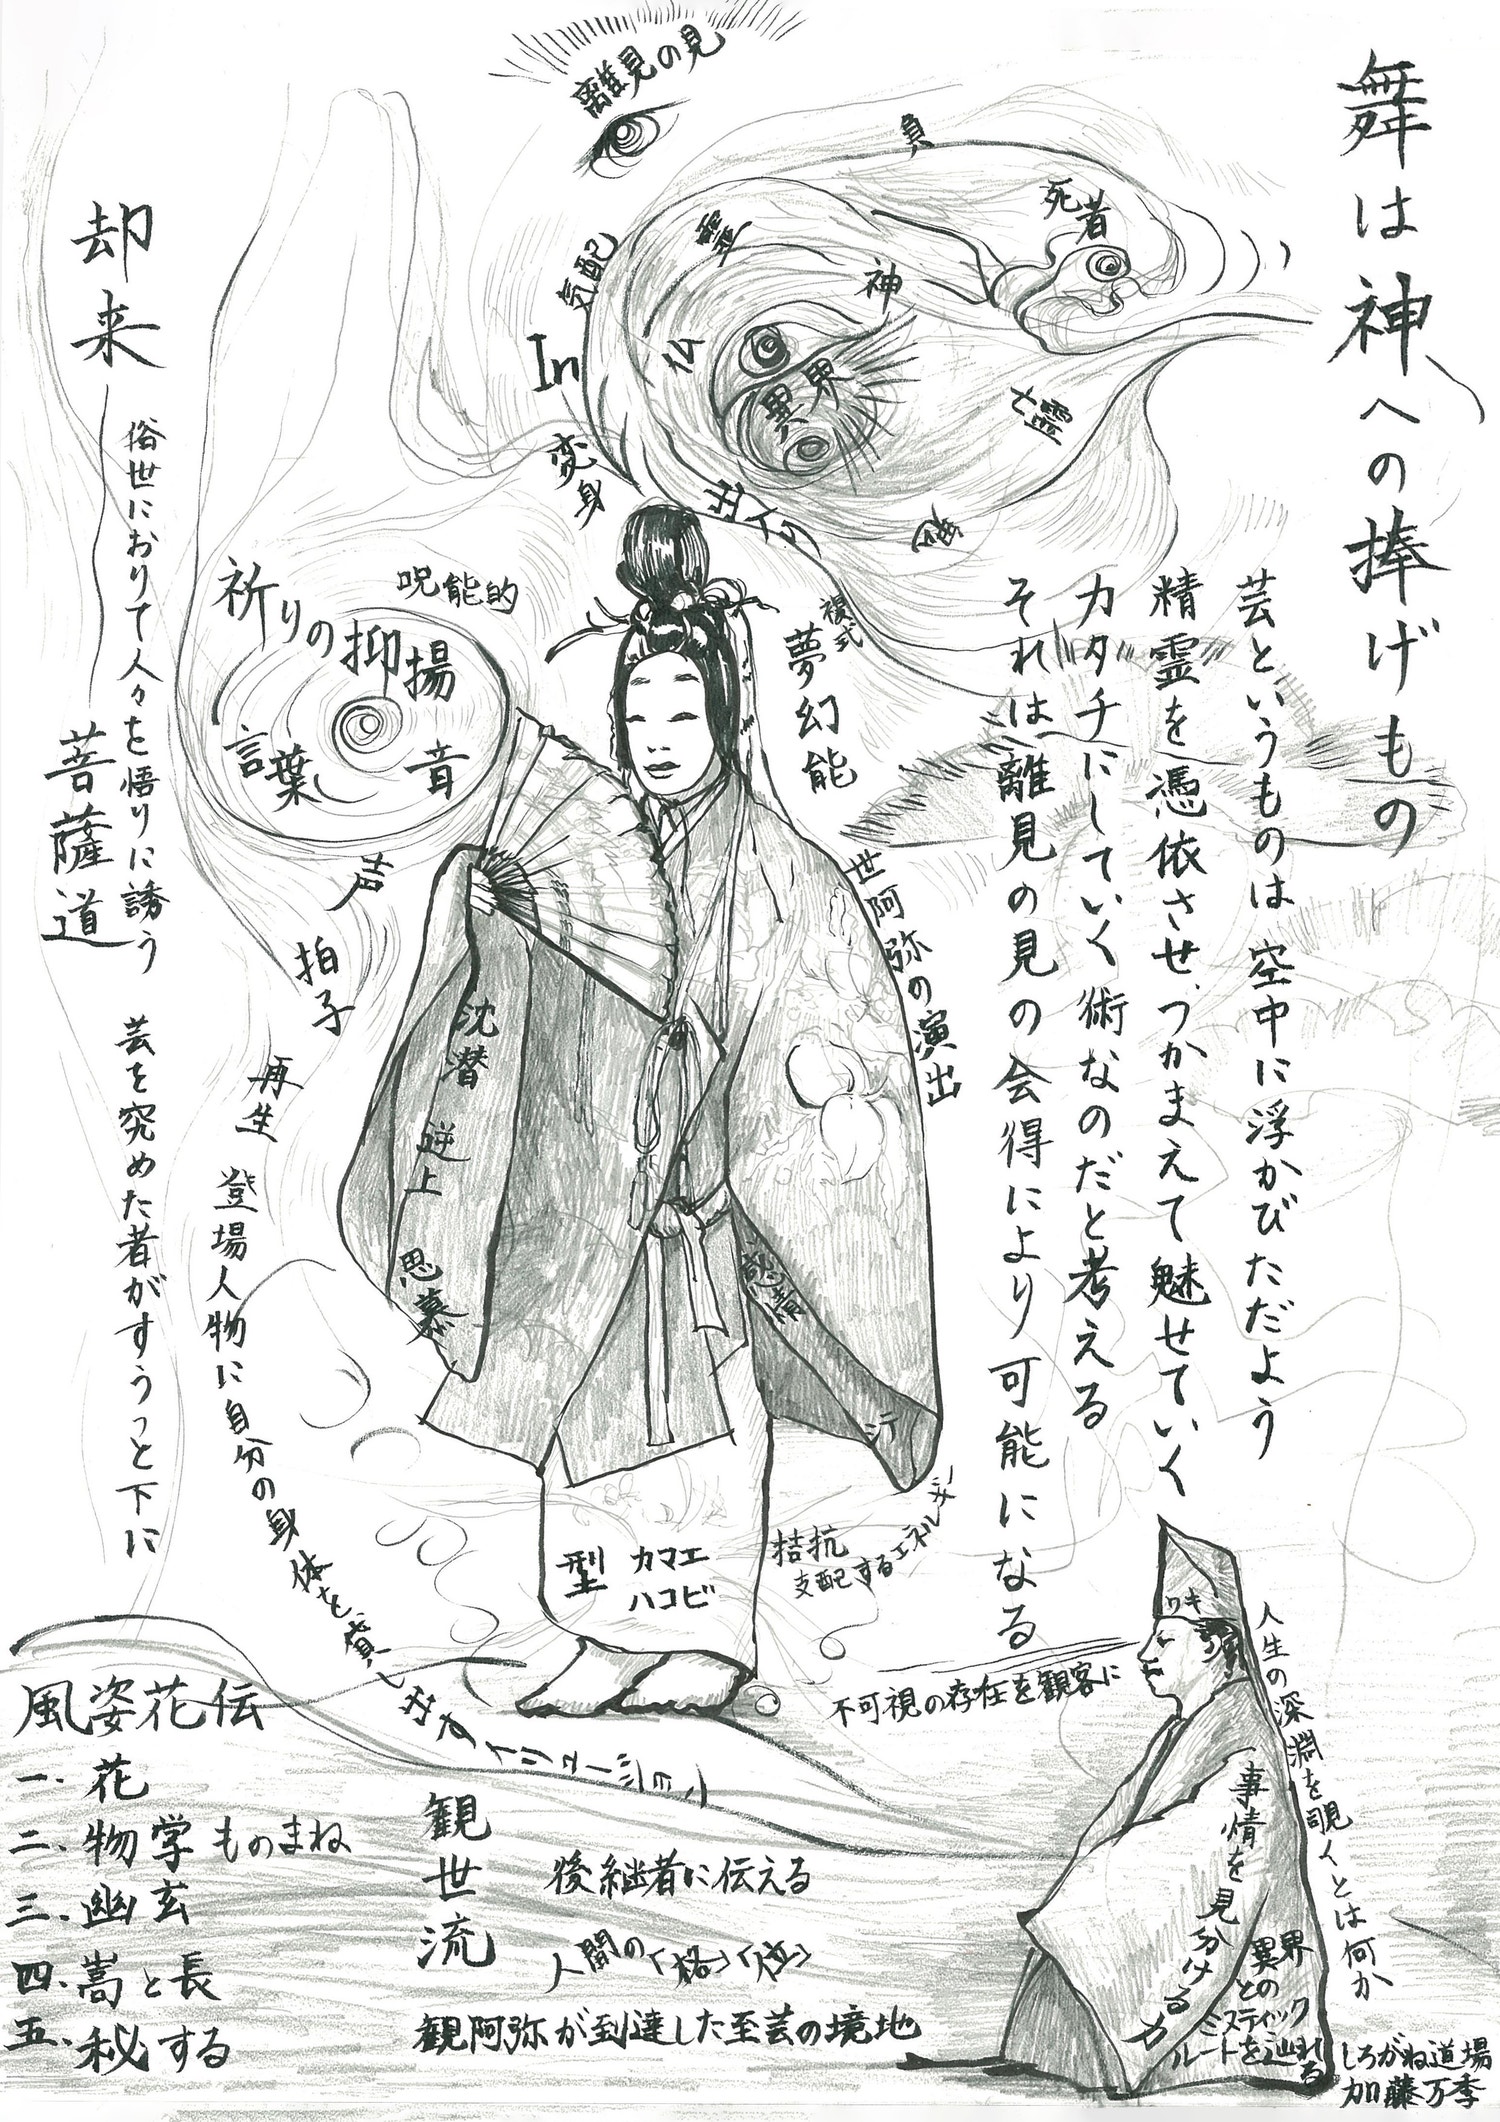 舞は神への捧げもの
芸というものは 空中に浮かびただよう
精霊を憑依させ、つかまえて魅せていく
カタチにしていく術なのだと考える
それは離見の見の会得により可能になる
離見の見
負
死者
霊
神
仏
異界
亡霊
気配
In
変身
複式
夢幻能
世阿弥の演出
呪能的
祈りの抑揚
言葉
音
声
拍子
再生
登場人物に自分の身体を貸し
却来
菩薩道
俗世におりて人々を悟りに誘う
芸を究めた者がすうっと下に
沈潜
逆上
思慕
感情
シテ
型
カマエ
ハコビ
拮抗
支配するエネルギー
不可視の存在を観客に
ワキ
人生の深淵を覗くとは何か
事情を見分ける力
異界
との
ミスティック
ルートを辿れる
風姿花伝
一、花
二、物学 ものまね
三、幽玄
四、嵩と長
五、秘する
観世流
後継者に伝える
人間の「格」「位」
観阿弥が到達した至芸の境地
しろがね道場
加藤万季